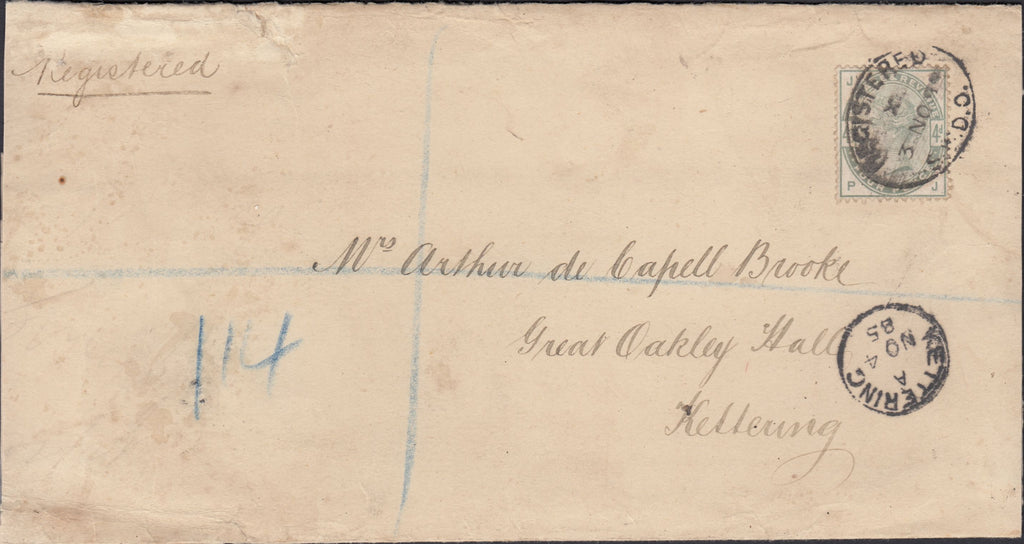 Registered
REGISTERED
X
3 NO
D.O.
J
4D
P J
Mrs Arthur de Capell Brooke
Great Oakley Hall
Kettering
114
KETTERING
A
NO 4
85